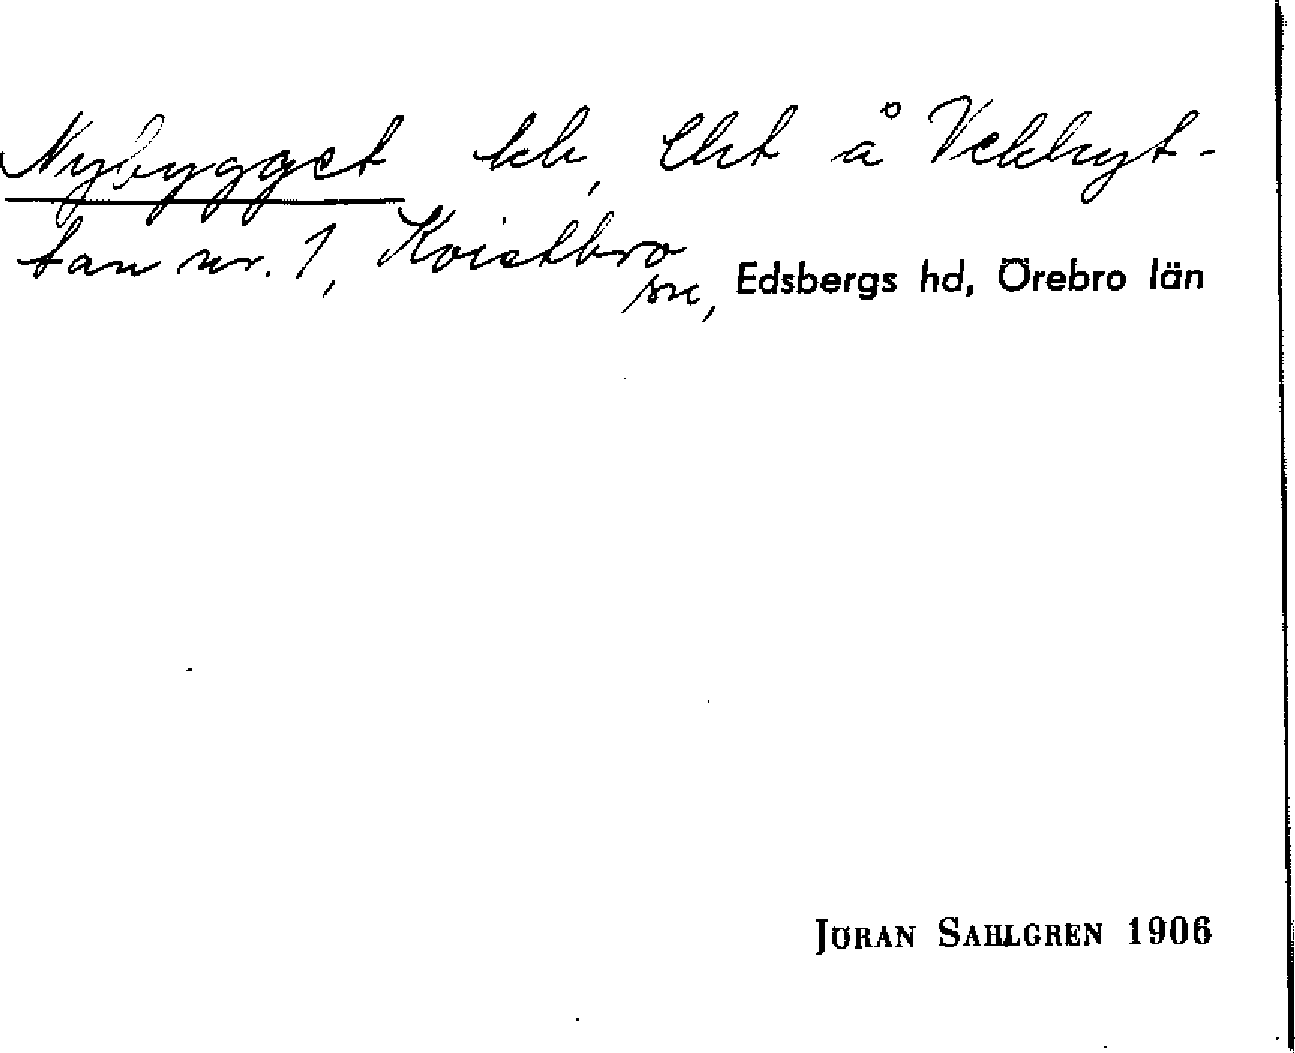 Nybygget lch, Cht å Vekhyt-
tan nr. 1, Kvistbro
sn, Edsbergs hd, Örebro län
JÖRAN SAHLGREN 1906